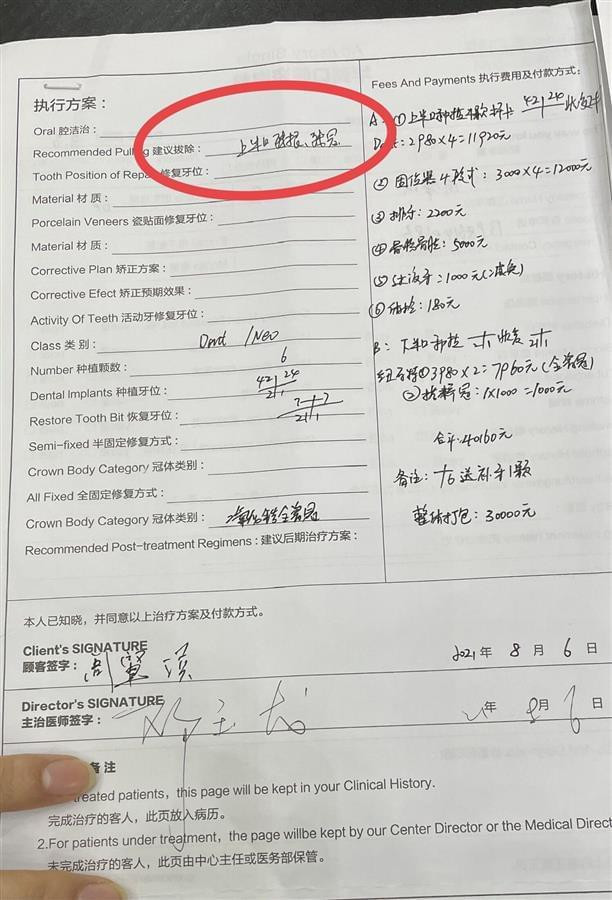 执行方案：
Oral 腔洁治：
Recommended Pulling 建议拔除：上半口残根、残冠
Tooth Position of Repair 修复牙位：
Material 材 质：
Porcelain Veneers 瓷贴面修复牙位：
Material 材 质：
Corrective Plan 矫正方案：
Corrective Efect 矫正预期效果：
Activity Of Teeth 活动牙修复牙位：
Class 类 别： /Neo
Number 种植颗数： 6
Dental Implants 种植牙位： 42 24
Restore Tooth Bit 恢复牙位： 7 7
Semi-fixed 半固定修复方式：
Crown Body Category 冠体类别：
All Fixed 全固定修复方式：
Crown Body Category 冠体类别： 全瓷冠
Recommended Post-treatment Regimens：建议后期治疗方案：
Fees And Payments 执行费用及付款方式：
A：① 上半口种植 42 24 恢复
2980×4=11920元
② 固位器4 3000×4=12000元
③ 2200元
④ 骨粉骨胶：5000元
⑤ 1000元
⑥ 180元
B：下半口种植 恢复
① 3980×2=7960元(全瓷冠)
② 1×1000=1000元
合计：40160元
备注： 6送 1颗
整体打包：30000元
本人已知晓，并同意以上治疗方案及付款方式。
Client's SIGNATURE
顾客签字：
2021 年 8 月 6 日
Director's SIGNATURE
主治医师签字：
年 8 月 6 日
备 注
treated patients, this page will be kept in your Clinical History.
完成治疗的客人，此页放入病历。
2.For patients under treatment, the page willbe kept by our Center Director or the Medical Direct
未完成治疗的客人，此页由中心主任或医务部保管。